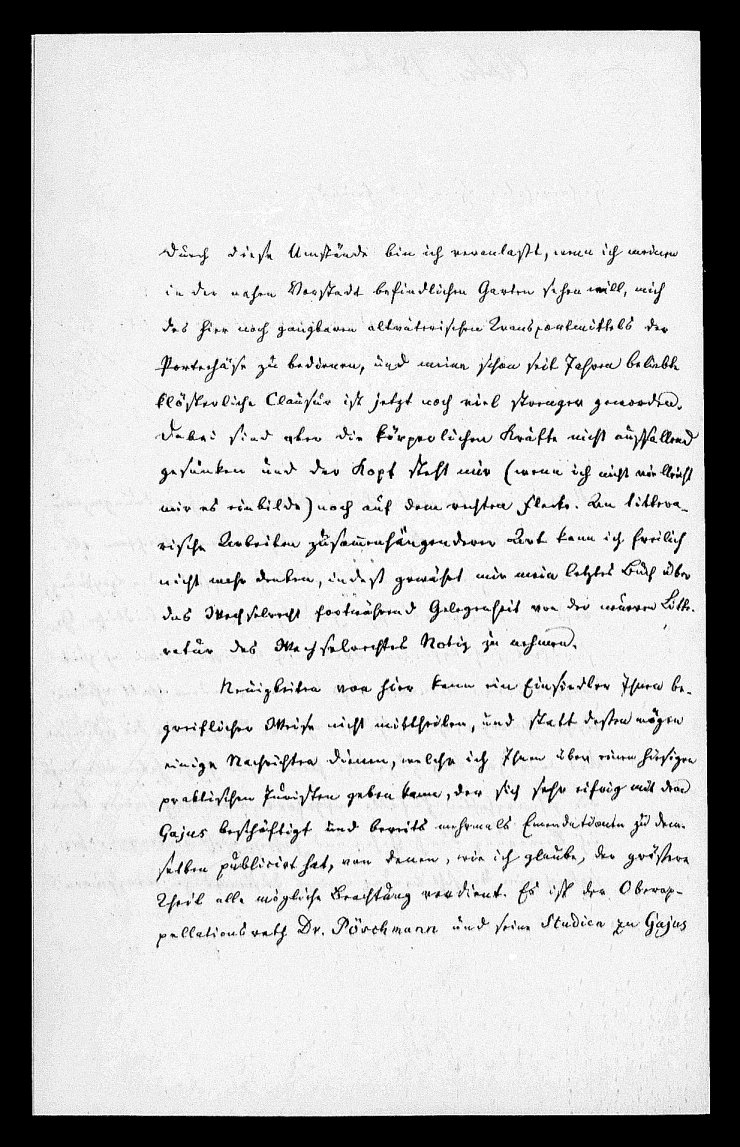 Durch diese Umstände bin ich veranlaßt, wenn ich meinen
in der nahen Vorstadt befindlichen Garten sehen will, mich
des hier noch gangbaren altväterischen Transportmittels der
Portechäse zu bedienen, und meine schon seit Jahren beliebte
klösterliche Clausur ist jetzt noch viel strenger geworden.
Dabei sind aber die körperlichen Kräfte nicht auffallend
gesunken und der Kopf steht mir (wenn ich nicht vielleicht
mir es einbilde) noch auf dem rechten Flecke. An littera-
rische Arbeiten zusammenhängenderer Art kann ich freilich
nicht mehr denken, indeß gewährt mir mein letztes Buch über
das Wechselrecht fortwährend Gelegenheit von der neueren Litte-
ratur des Wechselrechtes Notiz zu nehmen.
Neuigkeiten von hier kann ein Einsiedler Ihnen be-
greiflicher Weise nicht mittheilen, und statt dessen mögen
einige Nachrichten dienen, welche ich Ihnen über einen hiesigen
praktischen Juristen geben kann, der sich sehr eifrig mit dem
Gajus beschäftigt und bereits mehrmals Emendationen zu dem-
selben publicirt hat, von denen, wie ich glaube, der grössere
Theil alle mögliche Beachtung verdient. Es ist der Oberap-
pellationsrath Dr. Pörschmann und seine Studien zu Gajus